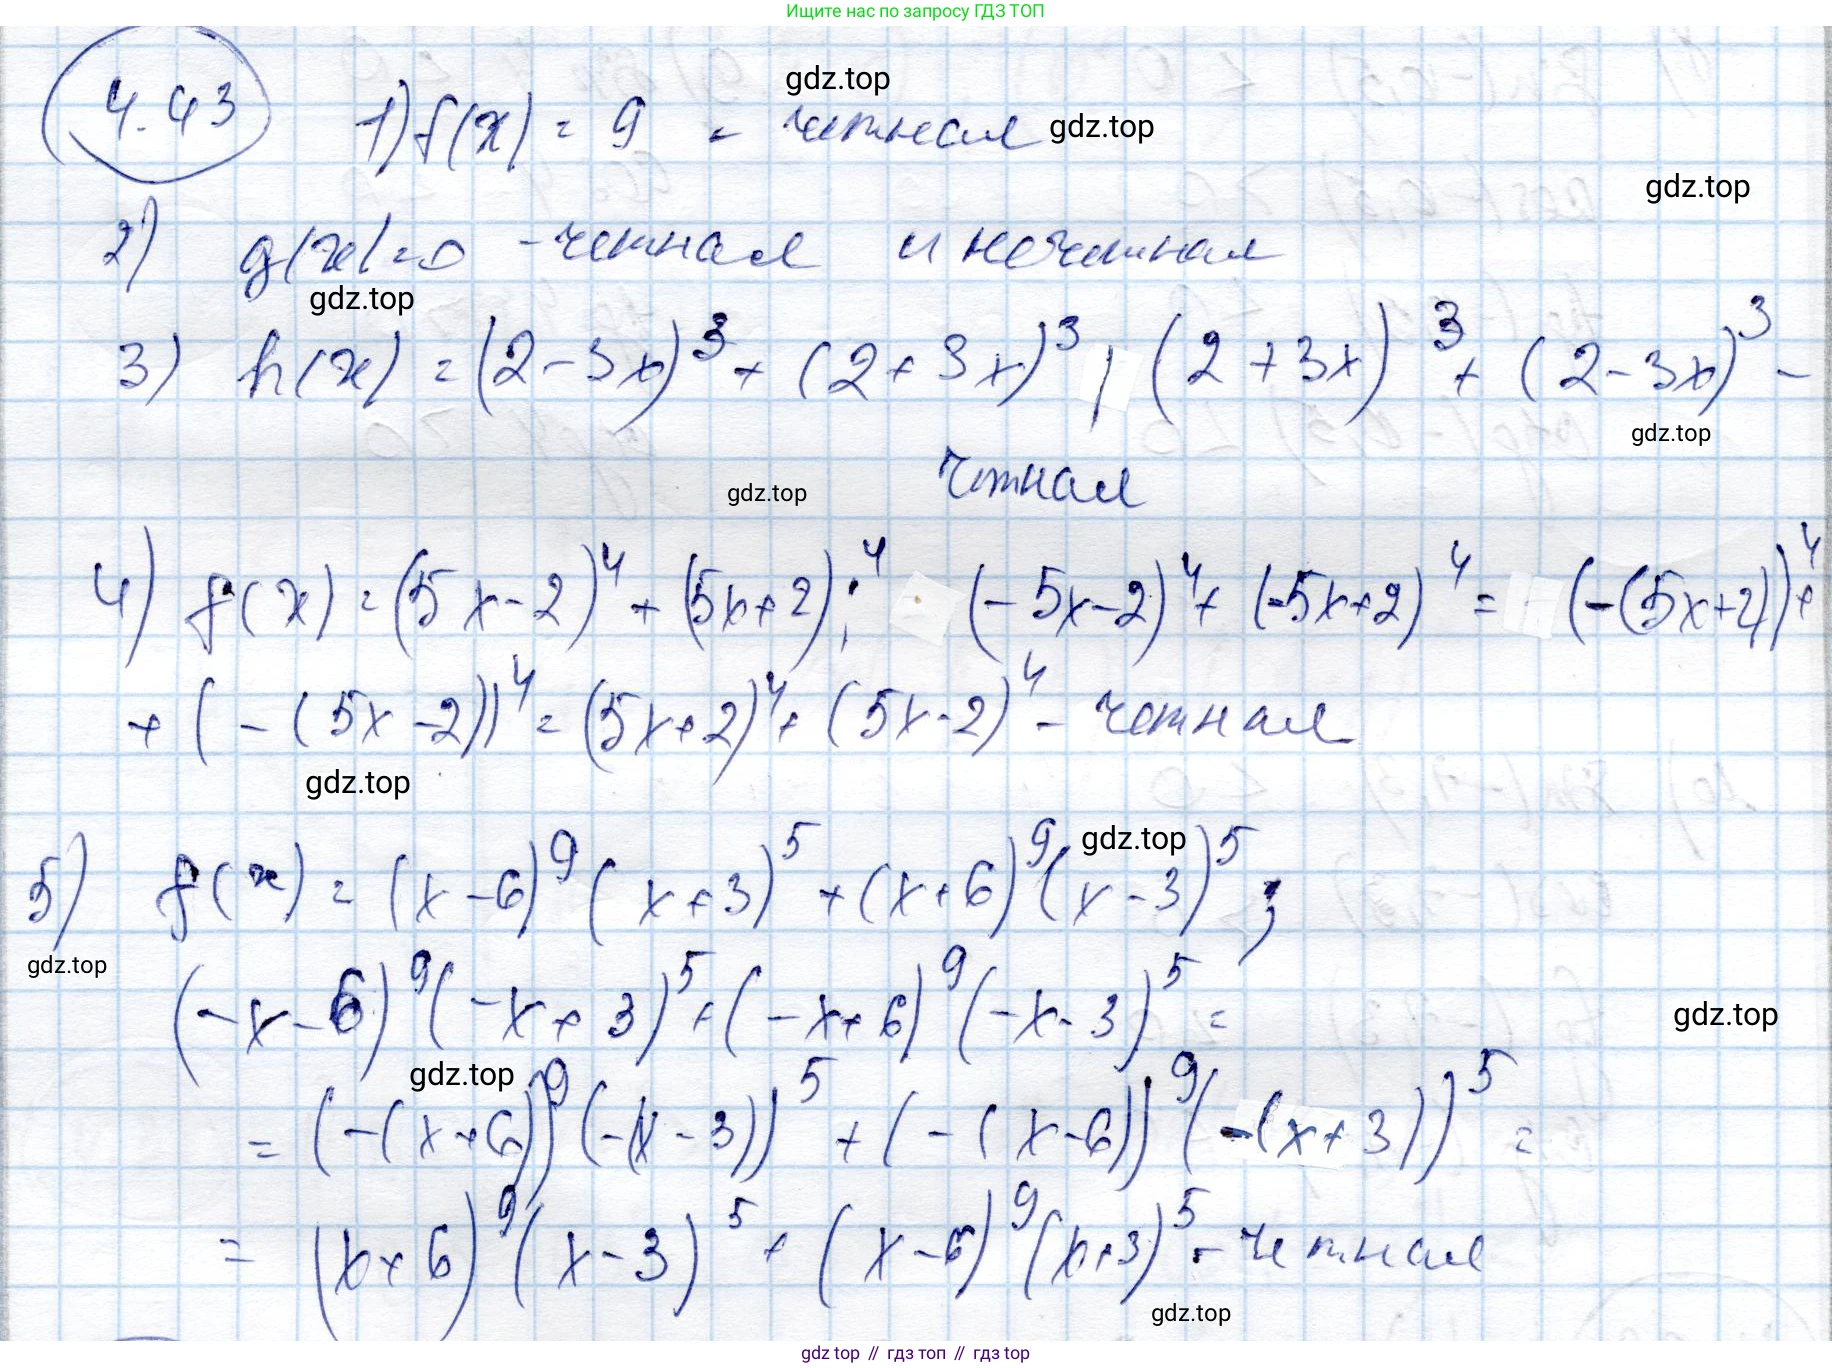 Ищите нас по запросу ГДЗ ТОП
4.43
1) f(x) = 9 - четная
gdz.top
gdz.top
gdz.top
2) g(x) = 0 - четная и нечетная
gdz.top
3) h(x) = (2-3x)³ + (2+3x)³; (2+3x)³ + (2-3x)³ -
gdz.top
чтная
gdz.top
4) f(x) = (5x-2)⁴ + (5x+2)⁴; (-5x-2)⁴ + (-5x+2)⁴ = (-(5x+2))⁴ +
+ (-(5x-2))⁴ = (5x+2)⁴ + (5x-2)⁴ - четная
gdz.top
gdz.top
5) f(x) = (x-6)⁹(x+3)⁵ + (x+6)⁹(x-3)⁵;
gdz.top
(-x-6)⁹(-x+3)⁵ + (-x+6)⁹(-x-3)⁵ =
gdz.top
gdz.top
= (-(x+6))⁹(-(x-3))⁵ + (-(x-6))⁹(-(x+3))⁵ =
= (x+6)⁹(x-3)⁵ + (x-6)⁹(x+3)⁵ - четная
gdz.top
gdz.top // гдз топ // гдз top